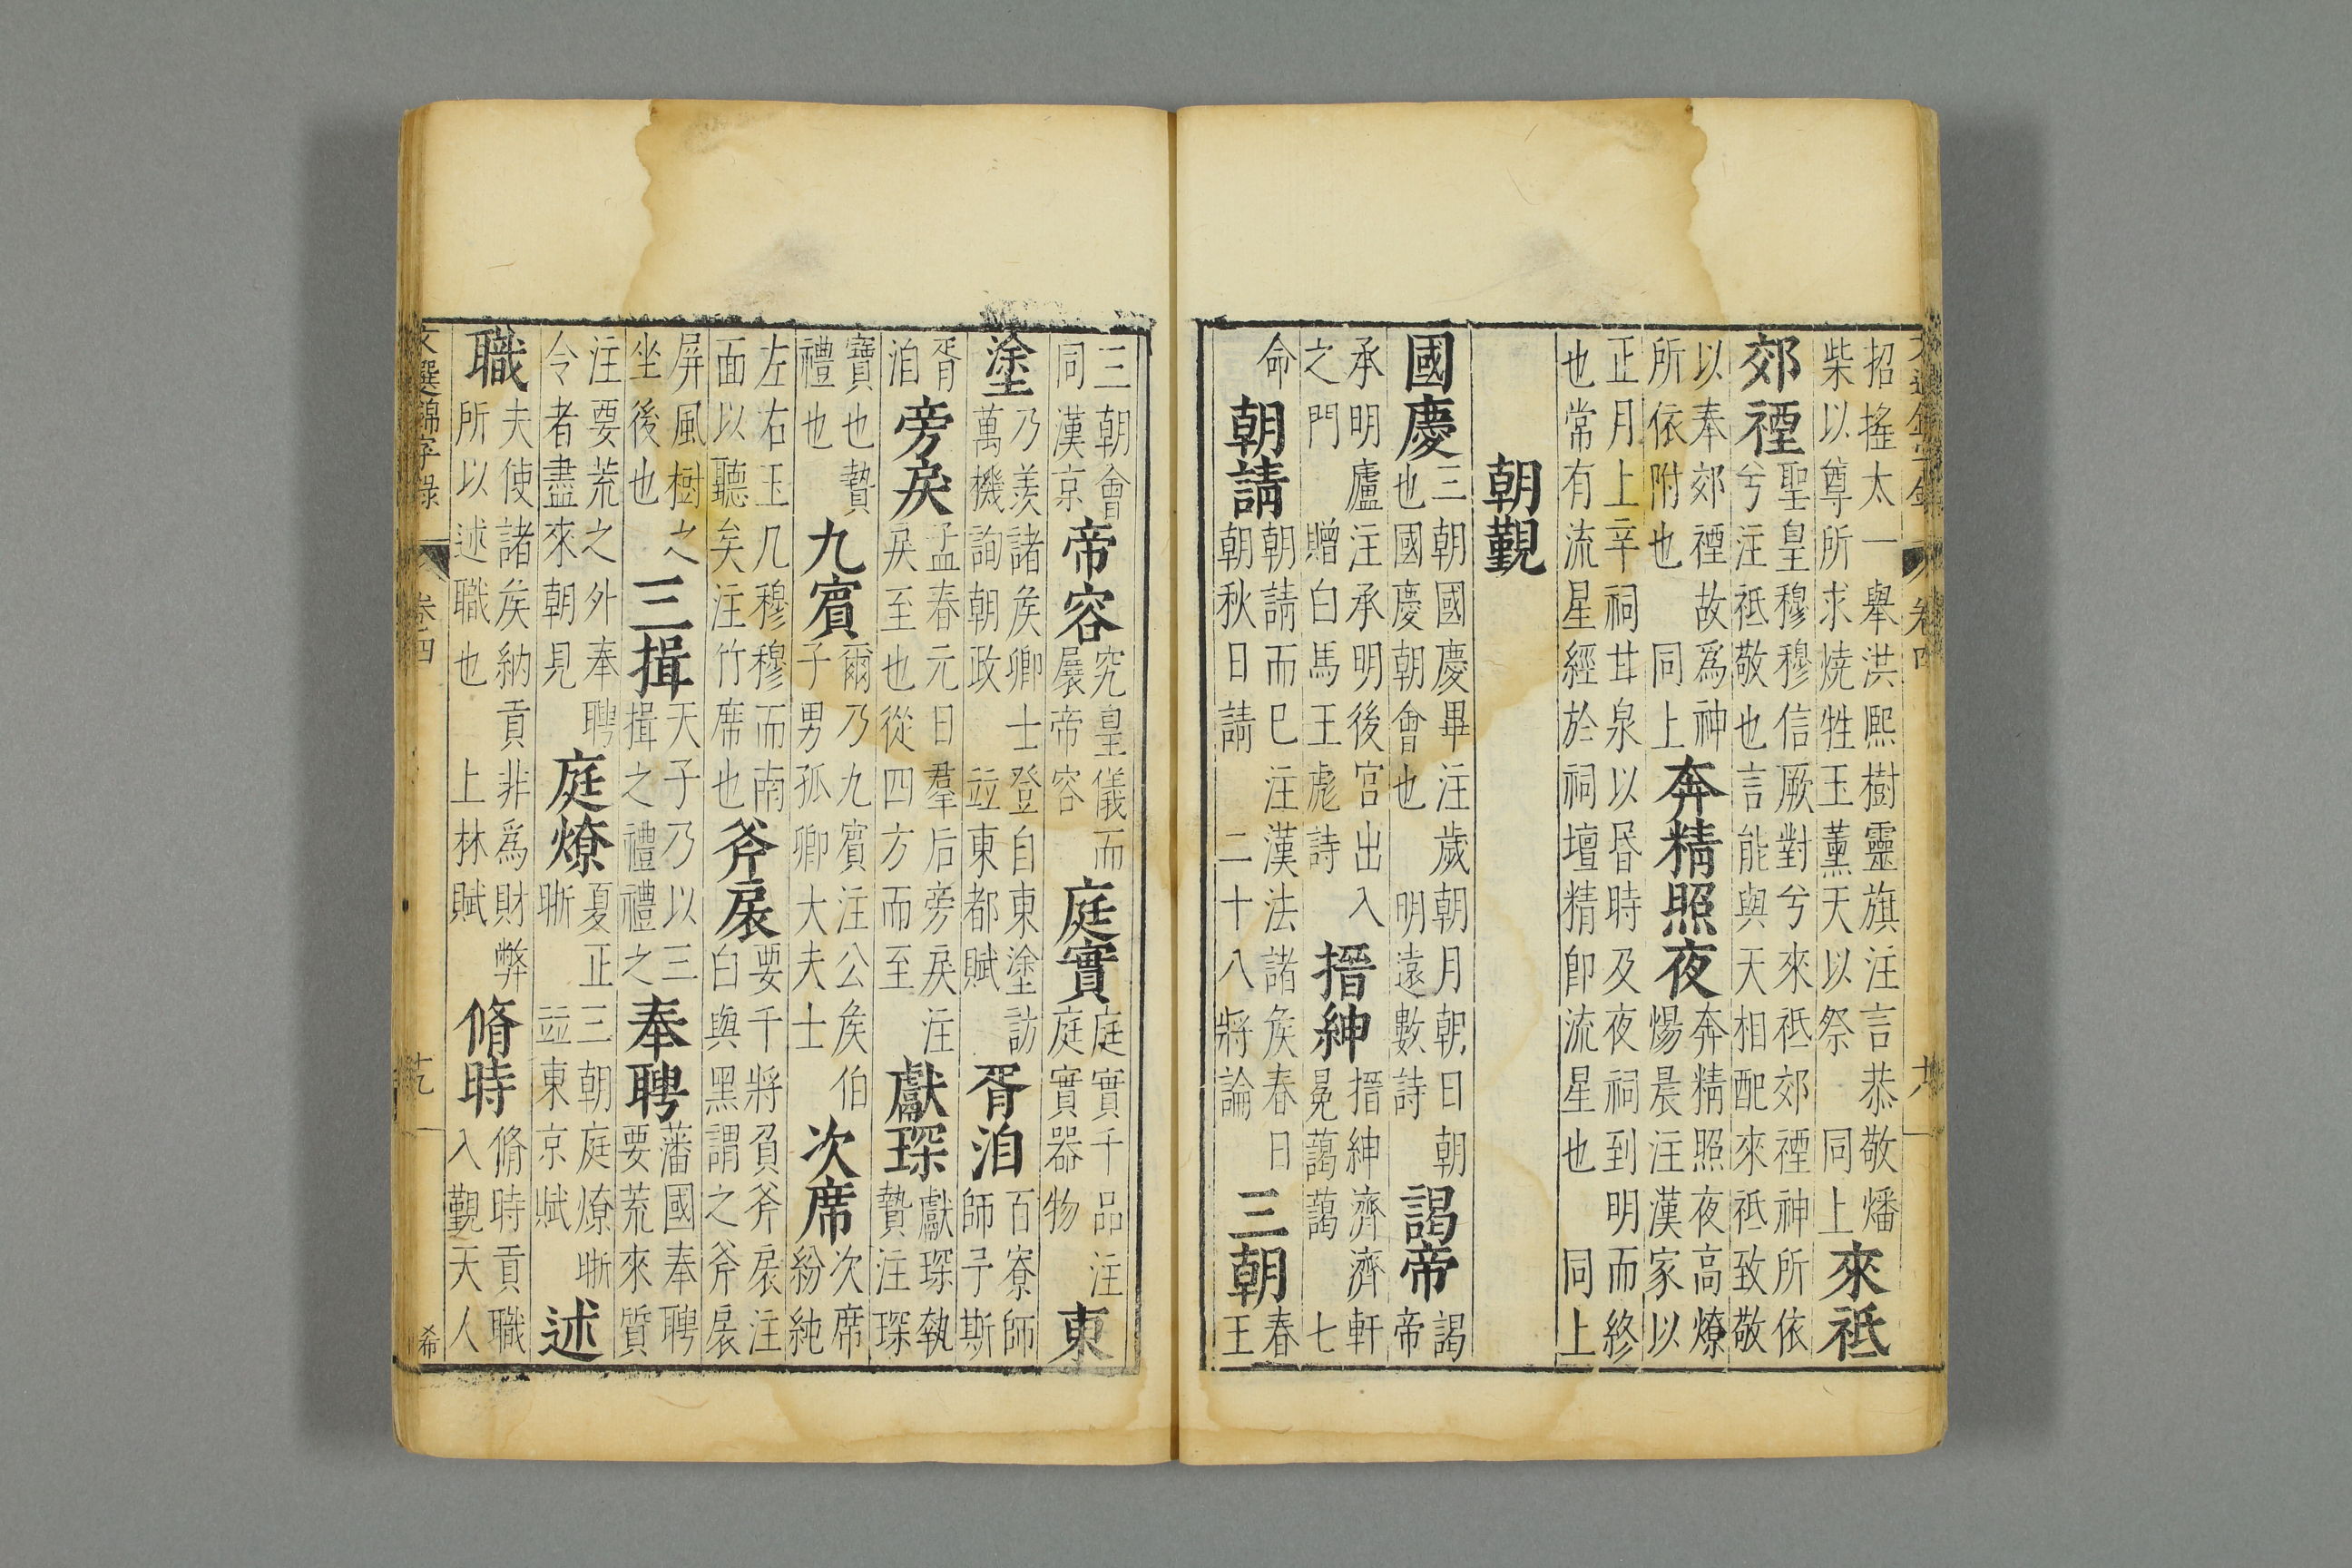 招搖太一舉洪熙樹靈旗注言恭敬燔柴以尊所求燒牲玉薰天以祭 同上 來祗
郊禋 聖皇穆穆信厥對兮來祗郊禋神所依兮注祗敬也言能與天相配來祗致敬
以奉郊禋故爲神所依附也 同上 奔精照夜 奔精照夜高燎煬晨注漢家以
正月上辛祠甘泉以昏時及夜祠到明而終也常有流星經於祠壇精卽流星也 同上
朝覲
國慶 三朝國慶畢注歲朝月朝日朝也國慶朝會也 明遠數詩 謁帝 謁帝
承明廬注承明後宮出入之門 贈白馬王彪詩 搢紳 搢紳濟濟軒冕藹藹 七
命 朝請 朝請而已注漢法諸矦春日朝秋日請 二十八將論 三朝 春王
三朝會同漢京 帝容 究皇儀而展帝容 庭實 庭實千品注庭實器物 東
塗 乃羨諸矦卿士登自東塗訪萬機詢朝政 竝東都賦 胥洎 百寮師師于斯
胥洎 旁戾 孟春元日羣后旁戾注戾至也從四方而至 獻琛 獻琛執贄注琛
寶也贄禮也 九賓 爾乃九賓注公矦伯子男孤卿大夫士 次席 次席紛純
左右玉几穆穆而南面以聽矣注竹席也 斧扆 要千將負斧扆注白與黑謂之斧扆
屏風樹之坐後也 三揖 天子乃以三揖之禮禮之 奉聘 藩國奉聘要荒來質
注要荒之外奉聘令者盡來朝見 庭燎 夏正三朝庭燎晰晰 竝東京賦 述
職 夫使諸矦納貢非爲財弊所以述職也 上林賦 脩時 脩時貢職入覲天人
文選錦字錄 卷四 希